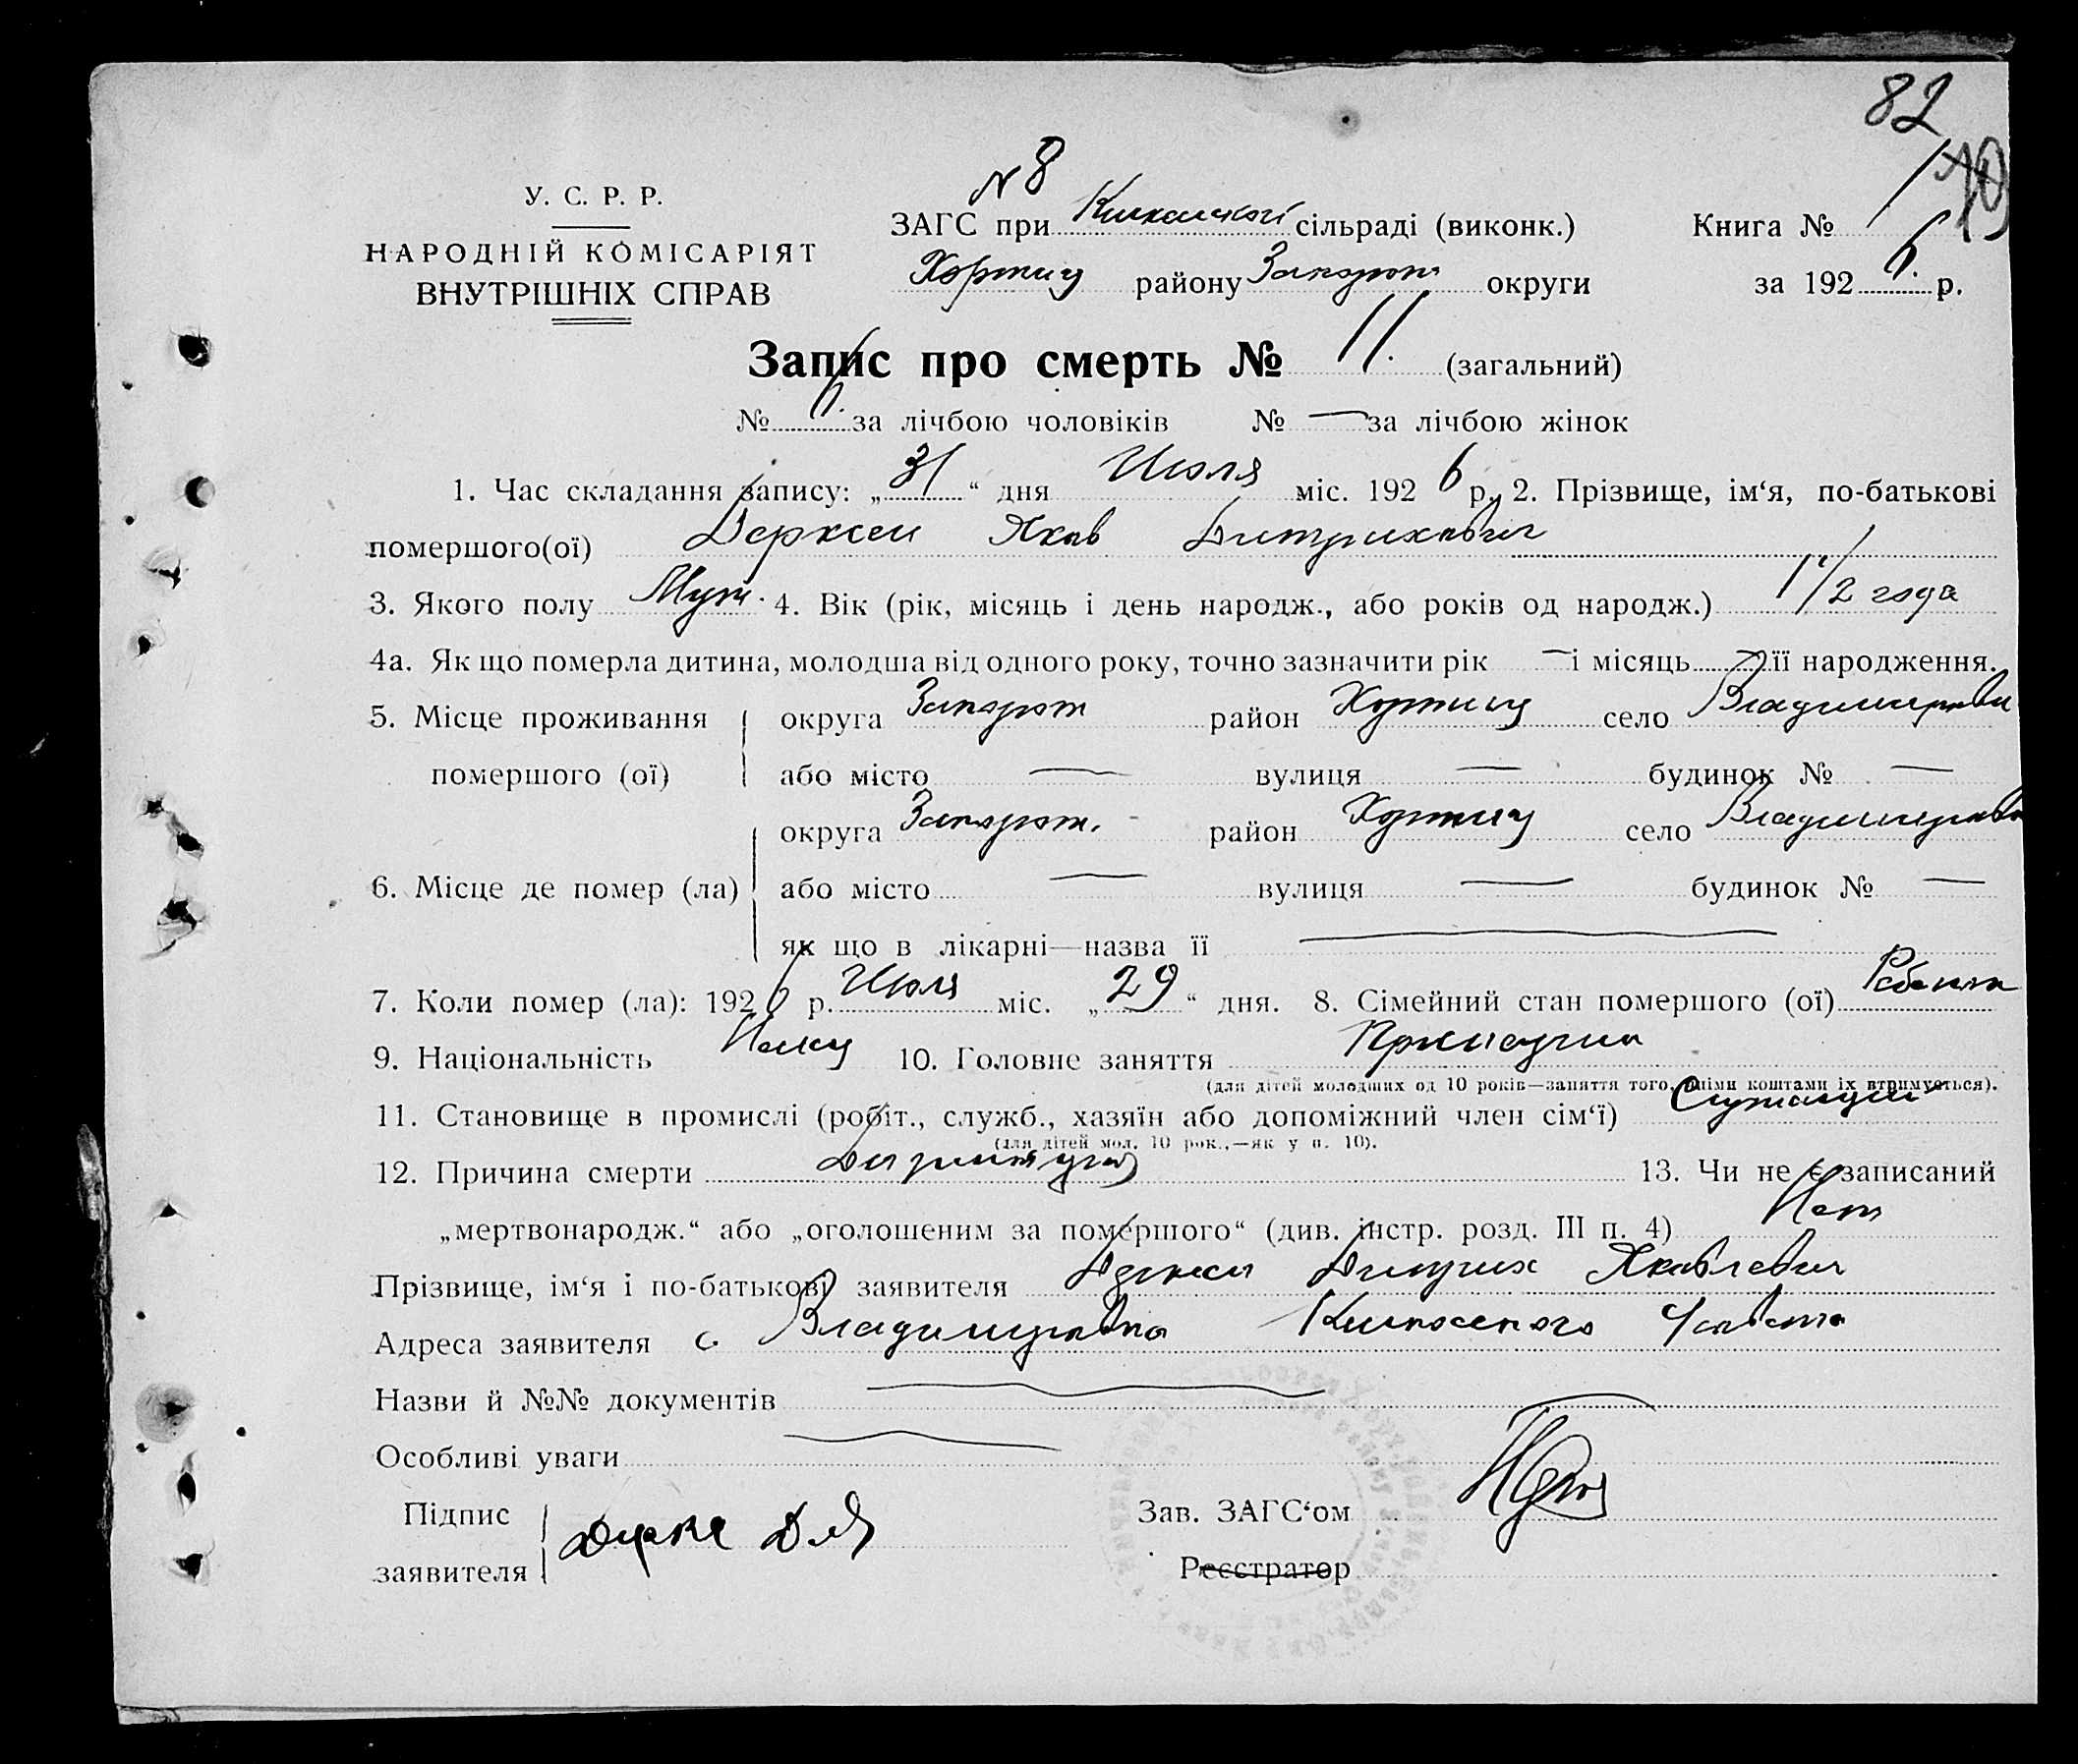 82
№ 8
У. С. Р. Р.
НАРОДНІЙ КОМІСАРІЯТ
ВНУТРІШНІХ СПРАВ
ЗАГС при сільраді (виконк.) Книга № 1
Хортиц району Запорож округи за 1926. р.
Запис про смерть № 11. (загальний)
№ 6. за лічбою чоловіків № — за лічбою жінок
1. Час складання запису: „31“ дня Июля міс. 1926 р. 2. Прізвище, ім‘я, по-батькові
помершого(ої) Дерксен Яков Дитрихович
3. Якого полу Муж. 4. Вік (рік, місяць і день народж., або років од народж.) 1 1/2 года
4а. Як що померла дитина, молодша від одного року, точно зазначити рік — і місяць — її народження.
5. Місце проживання округа Запорож район Хортиц село Владимировки
помершого (ої) або місто — вулиця — будинок № —
округа Запорож. район Хортиц село Владимировка
6. Місце де помер (ла) або місто — вулиця — будинок № —
як що в лікарні—назва її —
7. Коли помер (ла): 1926 р. Июля міс. „29“ дня. 8. Сімейний стан помершого (ої) Ребенок
9. Національність Немец 10. Головне заняття
(для дітей молодших од 10 років—заняття того, чиїми коштами їх втримується).
11. Становище в промислі (робіт., служб., хазяїн або допоміжний член сім‘ї)
(для дітей мол. 10 рок.,—як у п. 10).
12. Причина смерти Дизентерия 13. Чи не є записаний
„мертвонародж.“ або „оголошеним за помершого“ (див. інстр. розд. III п. 4) Нет
Прізвище, ім‘я і по-батькові заявителя Дерксен Дитрих Яковлевич
Адреса заявителя с. Владимировка
Назви й №№ документів —
Особливі уваги —
Підпис Зав. ЗАГС‘ом
заявителя Реєстратор